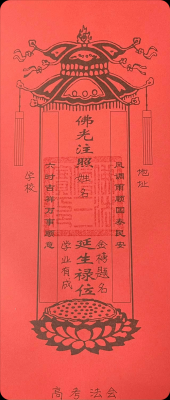 地址
风调雨顺国泰民安
金榜题名
佛光注照
姓名
延生禄位
学业有成
六时吉祥万事如意
学校
高考法会